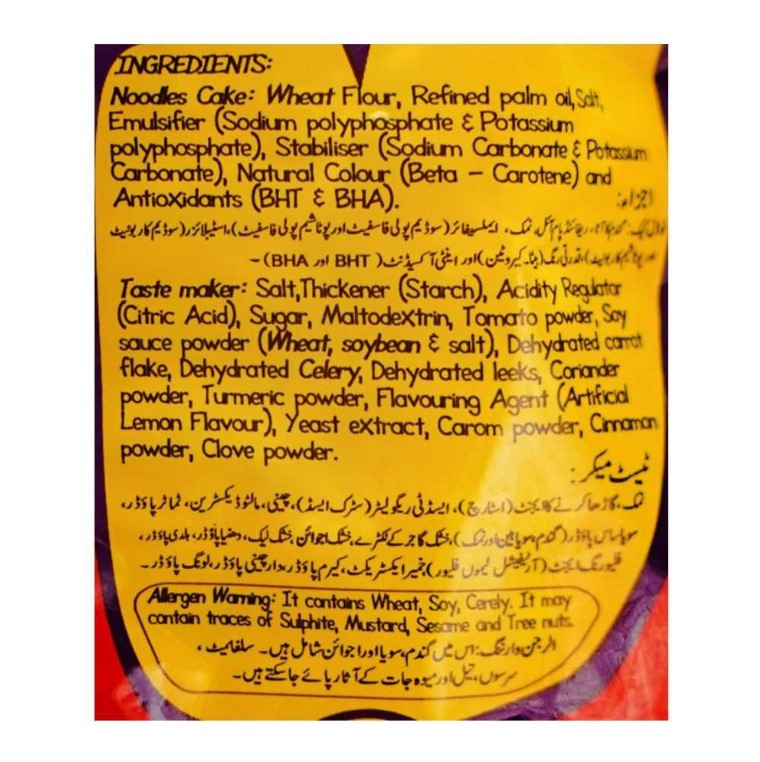 INGREDIENTS:
Noodles Cake: Wheat Flour, Refined palm oil, Salt,
Emulsifier (Sodium polyphosphate & Potassium
polyphosphate), Stabiliser (Sodium Carbonate & Potassium
Carbonate), Natural Colour (Beta - Carotene) and
Antioxidants (BHT & BHA).
اجزاء:
نمک، ایملسیفائر (سوڈیم پولی فاسفیٹ اور پوٹاشیم پولی فاسفیٹ)، اسٹیبلائزر (سوڈیم کاربونیٹ
اور پوٹاشیم کاربونیٹ)، قدرتی رنگ (بیٹا۔کیروٹین) اور اینٹی آکسیڈنٹ (BHT اور BHA)۔
Taste maker: Salt,Thickener (Starch), Acidity Regulator
(Citric Acid), Sugar, Maltodextrin, Tomato powder, Soy
sauce powder (Wheat, soybean & salt), Dehydrated carrot
flake, Dehydrated Celery, Dehydrated leeks, Coriander
powder, Turmeric powder, Flavouring Agent (Artificial
Lemon Flavour), Yeast extract, Carom powder, Cinnamon
powder, Clove powder.
ٹیسٹ میکر:
نمک، گاڑھا کرنے کا ایجنٹ (اسٹارچ)، ایسڈٹی ریگولیٹر (سٹرک ایسڈ)، چینی، مالٹوڈیکسٹرین، ٹماٹر پاؤڈر،
سویا ساس پاؤڈر (گندم، سویابین اور نمک)، خشک گاجر کے ٹکڑے، خشک اجوائن، خشک لیک، دھنیا پاؤڈر، ہلدی پاؤڈر،
فلیورنگ ایجنٹ (آرٹیفیشل لیموں فلیور)، خمیر ایکسٹریکٹ، کیرم پاؤڈر، دار چینی پاؤڈر، لونگ پاؤڈر۔
Allergen Warning: It contains Wheat, Soy, Cerely. It may
contain traces of Sulphite, Mustard, Sesame and Tree nuts.
الرجن وارننگ: اس میں گندم، سویا اور اجوائن شامل ہیں۔ سلفائیٹ،
سرسوں، تیل اور میوہ جات کے آثار پائے جا سکتے ہیں۔